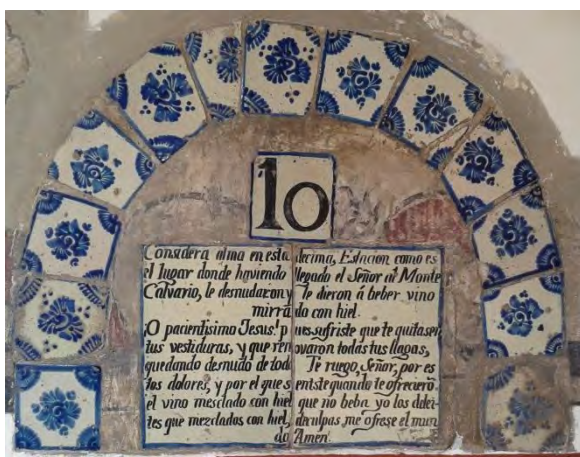 10
Considera alma en esta decima, Estacion como es
el lugar donde haviendo llegado el Señor al Monte
Calvario, le desnudaron y le dieron á beber vino
mirrado con hiel.
¡O pacientisimo Jesus! pues sufriste que te quitasen
tus vestiduras, y que renovaron todas tus llagas,
quedando desnudo de todo Te ruego, Señor, por es
tos dolores, y por el que sentiste quando te ofreciero
el vino mesclado con hiel que no beba yo los delei-
tes que mezclados con hiel, de culpas, me ofrese el mun
do Amen.